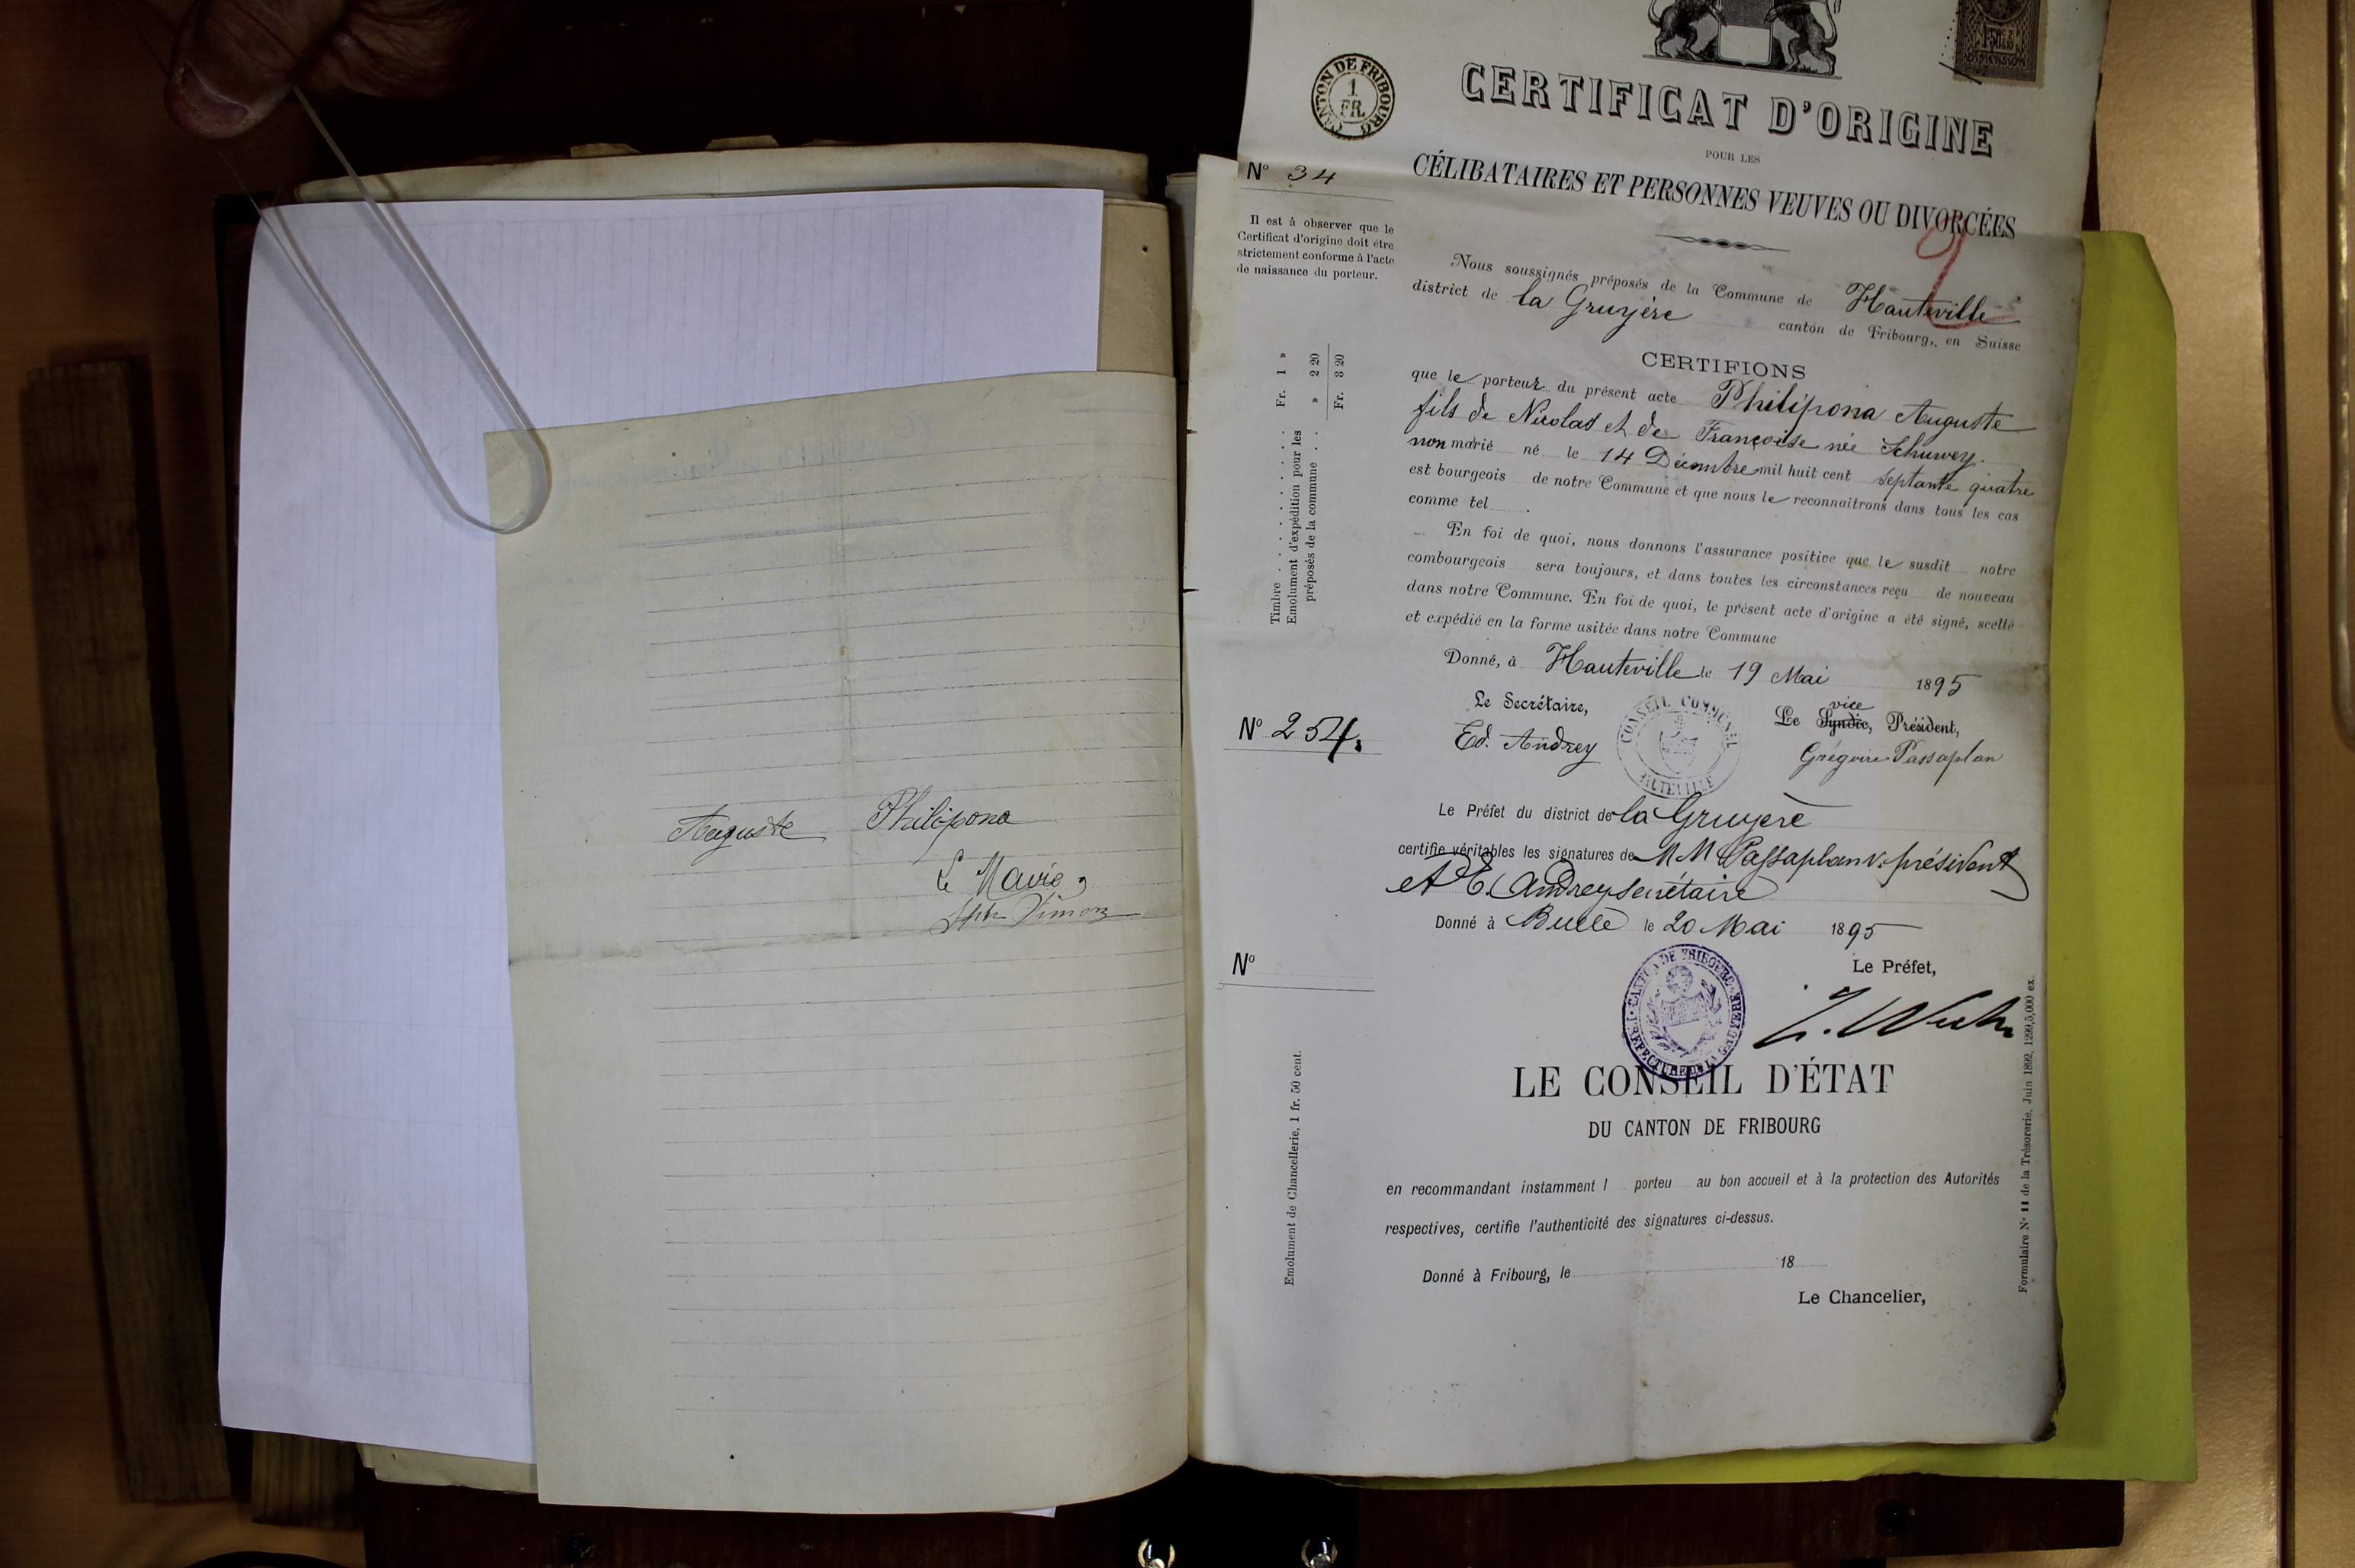 Auguste Philipona
Le Maire,
CANTON DE FRIBOURG
1
FR.
DIMENSION
CERTIFICAT D'ORIGINE
POUR LES
CÉLIBATAIRES ET PERSONNES VEUVES OU DIVORCÉES
N° 34
Il est à observer que le
Certificat d'origine doit être
strictement conforme à l'acte
de naissance du porteur.
2
Nous soussignés préposés de la Commune de Hauteville
district de la Gruyère canton de Fribourg, en Suisse
CERTIFIONS
que le porteur du présent acte Philipona Auguste
fils de Nicolas et de Françoise née Schuwey.
non marié né le 14 Décembre mil huit cent septante quatre
est bourgeois de notre Commune et que nous le reconnaîtrons dans tous les cas
comme tel .
En foi de quoi, nous donnons l'assurance positive que le susdit notre
combourgeois sera toujours, et dans toutes les circonstances reçu de nouveau
dans notre Commune. En foi de quoi, le présent acte d'origine a été signé, scellé
et expédié en la forme usitée dans notre Commune
Timbre . . . . . . . . . . Fr. 1 »
Emolument d'expédition pour les
préposés de la commune . . » 2 20
Fr. 3 20
Donné, à Hauteville le 19 Mai 1895
Le Secrétaire,
Ed. Andrey
CONSEIL COMMUNAL
HAUTEVILLE
vice
Le Syndic, Président,
Grégoire Passaplan
N° 254.
Le Préfet du district de la Gruyère
certifie véritables les signatures de MM Passaplan v. président
et E. Andrey secrétaire
Donné à Bulle le 20 Mai 1895
Le Préfet,
CANTON DE FRIBOURG
PRÉFECTURE DE LA GRUYÈRE
N°
LE CONSEIL D'ÉTAT
DU CANTON DE FRIBOURG
en recommandant instamment l porteu au bon accueil et à la protection des Autorités
respectives, certifie l'authenticité des signatures ci-dessus.
Donné à Fribourg, le 18
Le Chancelier,
Emolument de Chancellerie, 1 fr. 50 cent.
Formulaire N° 11 de la Trésorerie, Juin 1892, 1299,5,000 ex.